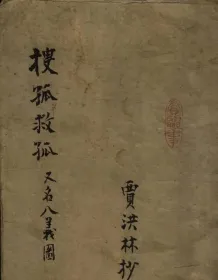 搜孤救孤
又名八義圖
賈洪林抄